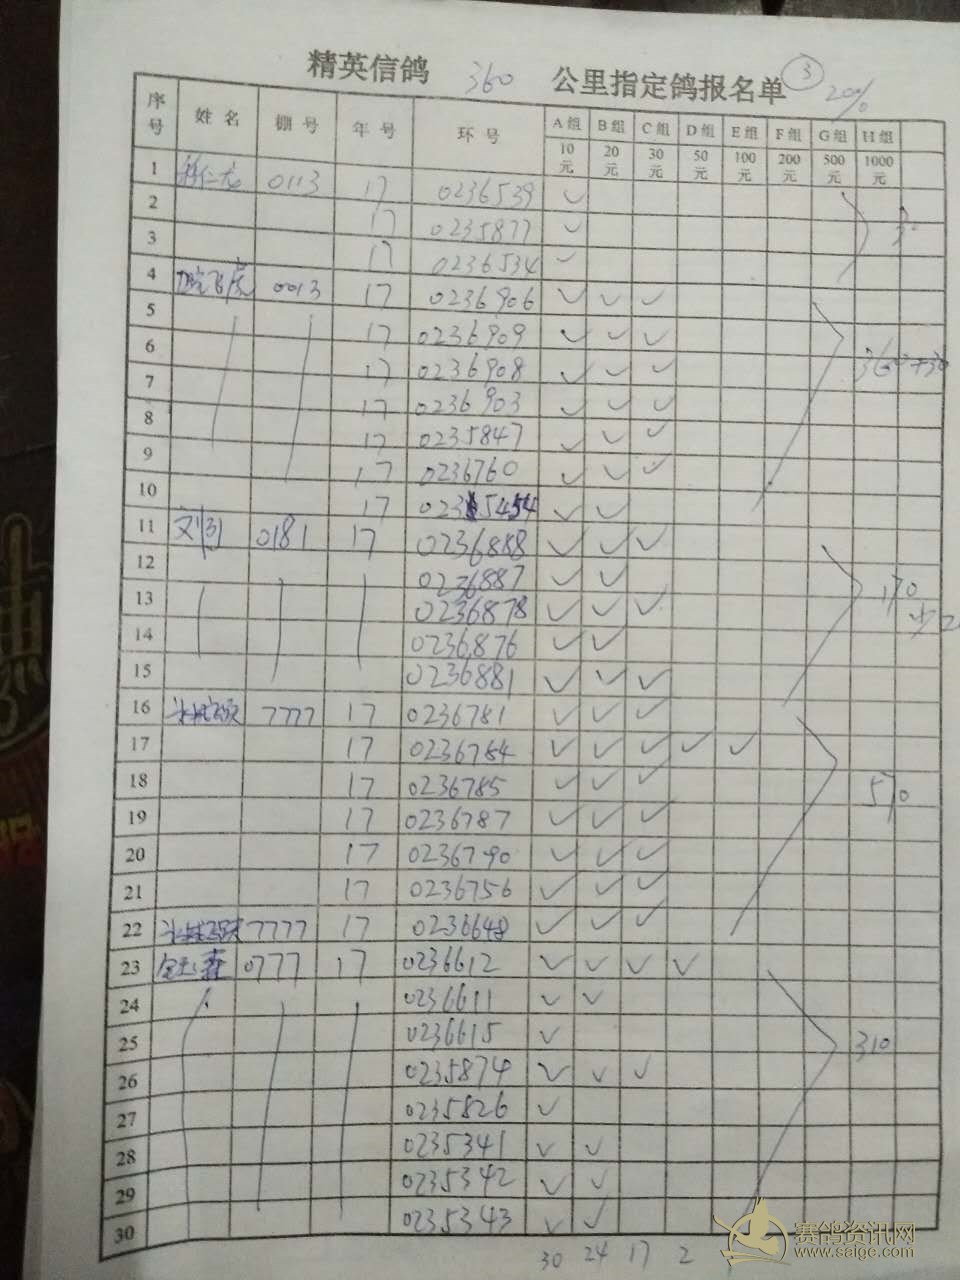 精英信鸽 360 公里指定鸽报名单 ③ 20%
序号 姓名 棚号 年号 环号 A组 B组 C组 D组 E组 F组 G组 H组
10元 20元 30元 50元 100元 200元 500元 1000元
1 0113 17 0236539 ✓
2 17 0235877 ✓
3 17 0236534 ✓
4 0013 17 0236906 ✓ ✓ ✓
5 17 0236909 ✓ ✓ ✓
6 17 0236908 ✓ ✓ ✓
7 17 0236903 ✓ ✓ ✓
8 17 0235847 ✓ ✓ ✓
9 17 0236760 ✓ ✓ ✓
10 17 ✓ ✓
11 0181 17 0236888 ✓ ✓ ✓
12 0236887 ✓ ✓
13 0236878 ✓ ✓ ✓
14 0236876 ✓ ✓
15 0236881 ✓ ✓ ✓
16 7777 17 0236781 ✓ ✓ ✓
17 17 0236784 ✓ ✓ ✓ ✓ ✓
18 17 0236785 ✓ ✓ ✓
570
19 17 0236787 ✓ ✓ ✓
20 17 0236790 ✓ ✓ ✓
21 17 0236756 ✓ ✓ ✓
22 7777 17 0236648 ✓ ✓ ✓
23 0777 17 0236612 ✓ ✓ ✓ ✓
24 0236611 ✓ ✓
25 0236615 ✓
310
26 0235874 ✓ ✓ ✓
27 0235826 ✓
28 0235341 ✓ ✓
29 0235342 ✓ ✓
30 0235343 ✓ ✓
30 24 17 2
赛鸽资讯网
www.saigc.com